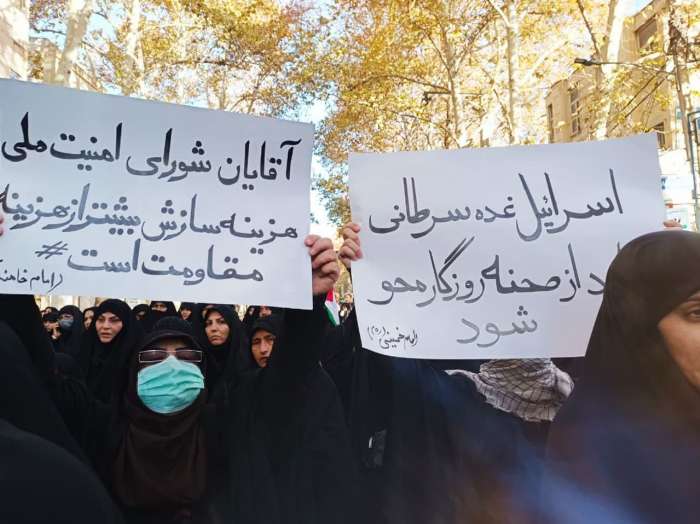 آقایان شورای امنیت ملی
هزینه سازش بیشتر از هزینه
مقاومت است #
(امام خامنه
اسرائیل غده سرطانی
از صحنه روزگار محو
شود
(امام خمینی (ره